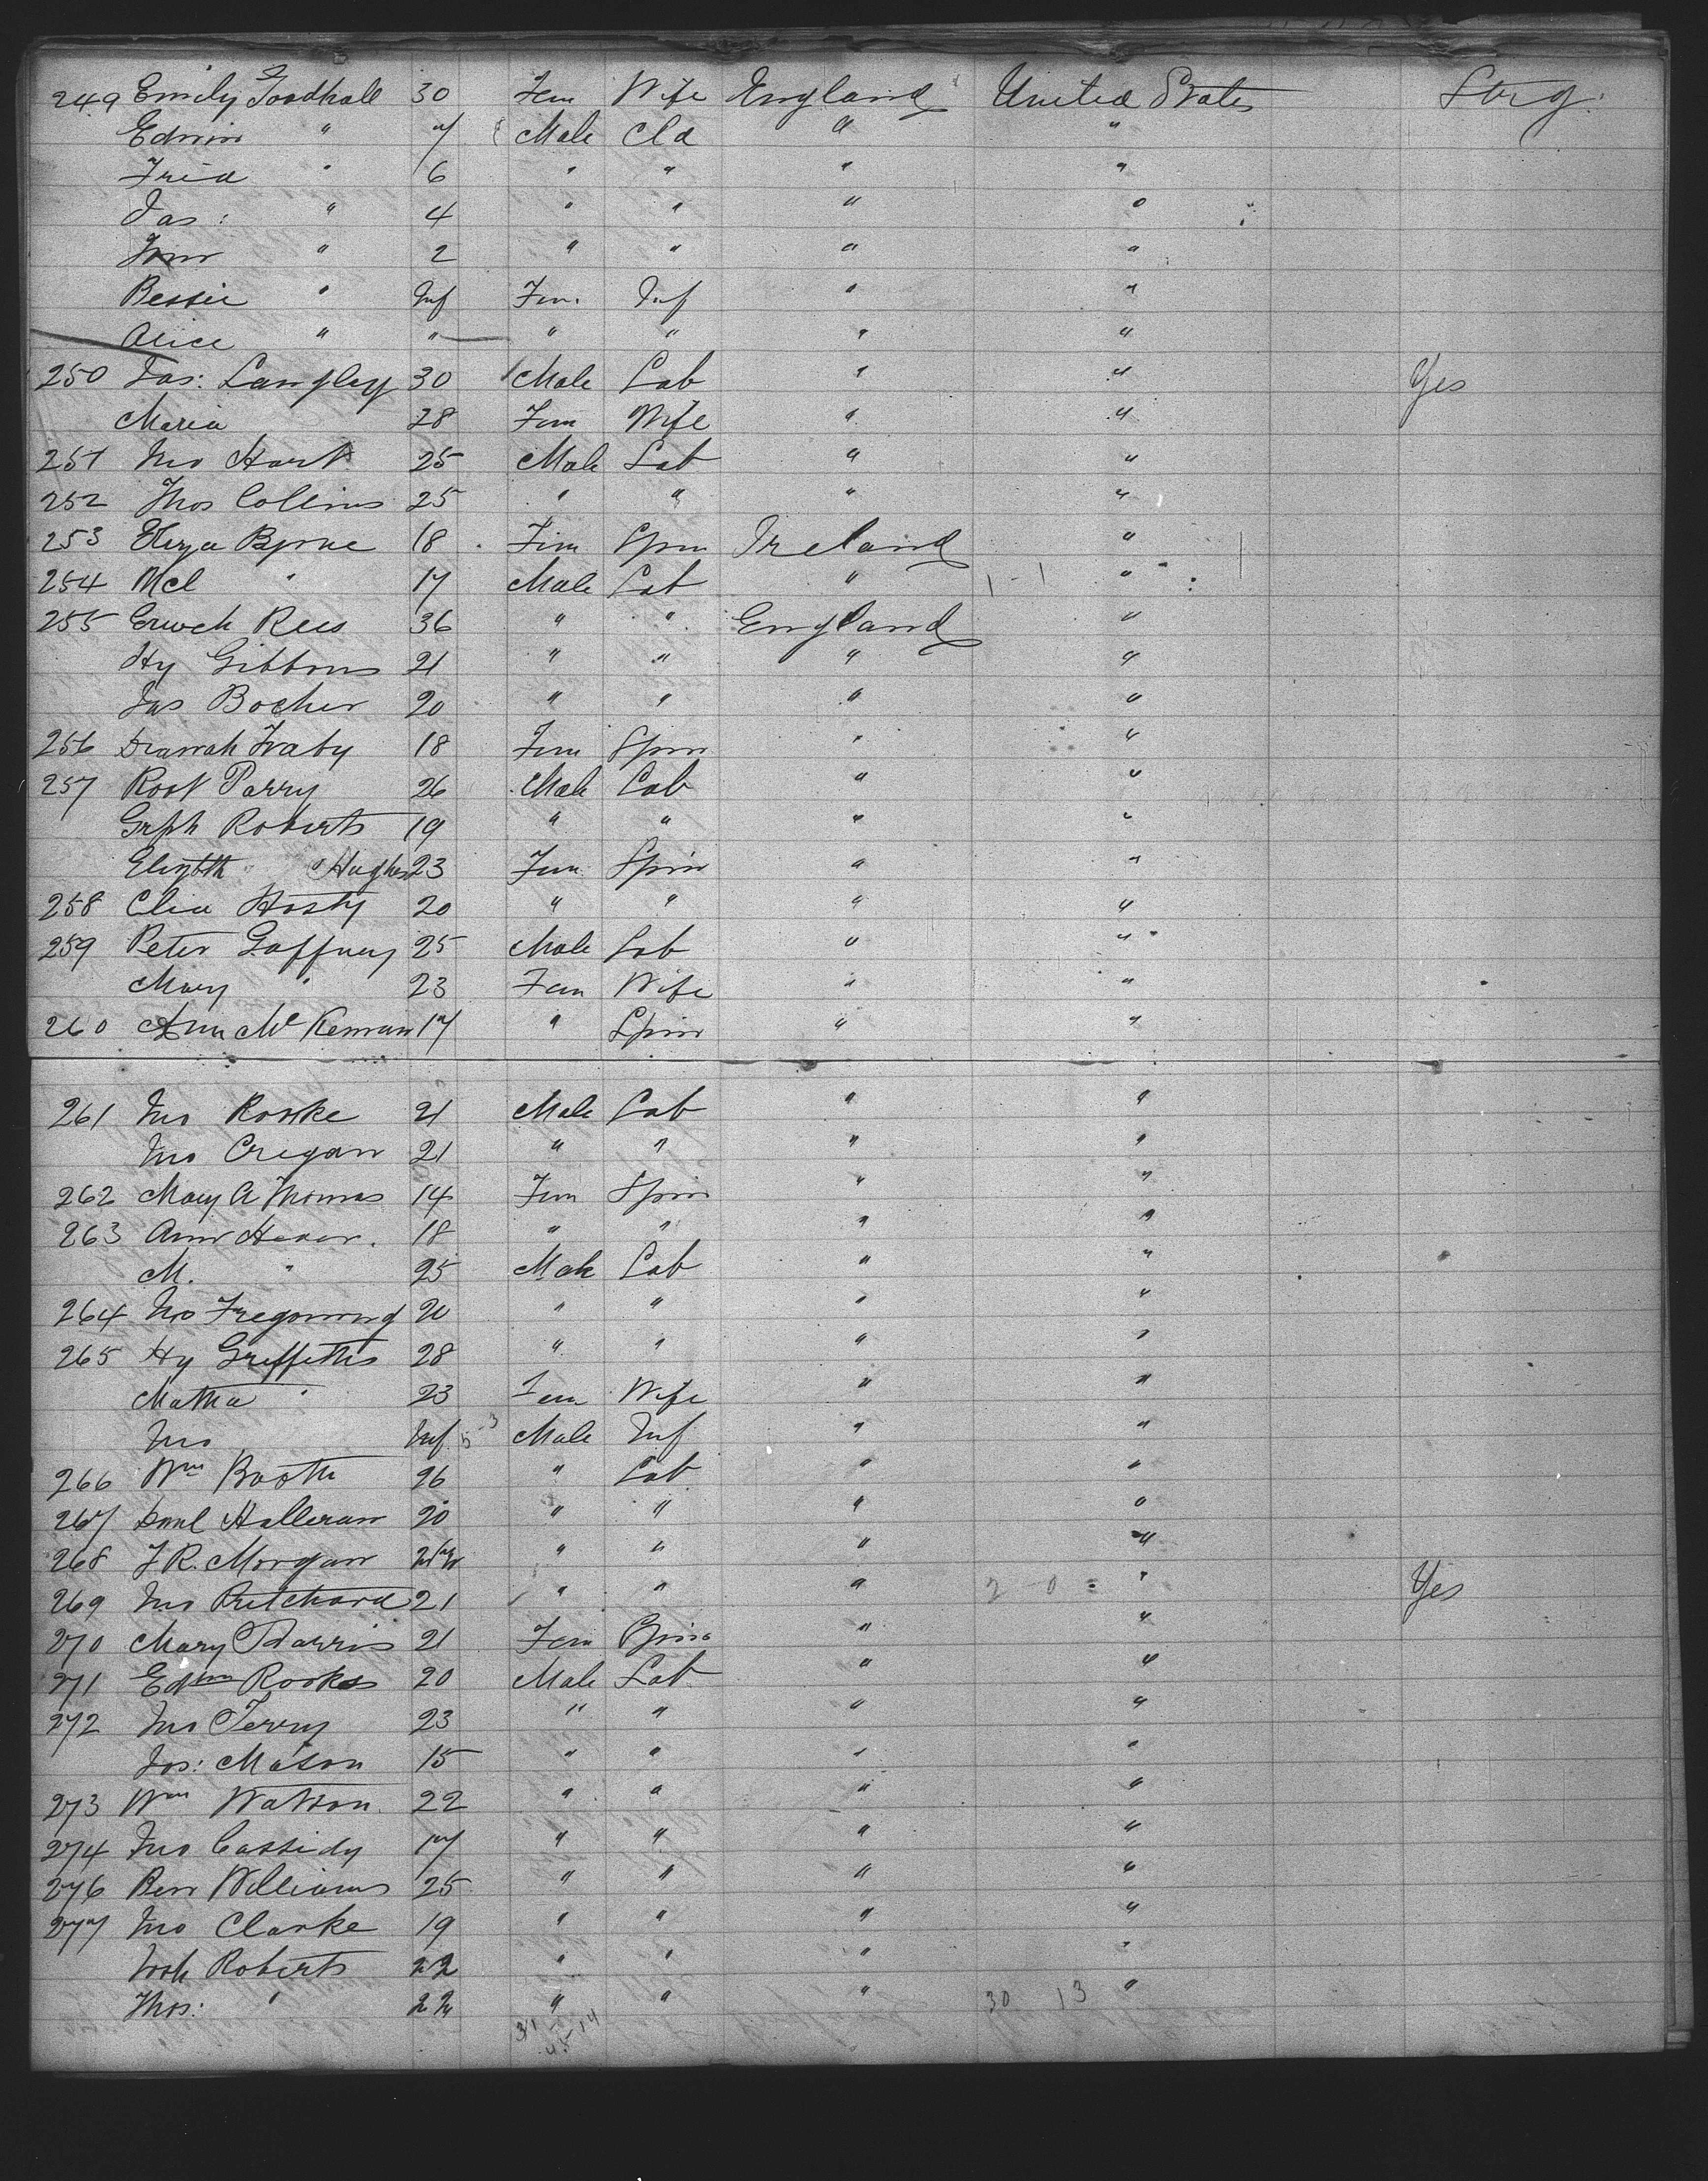 249 Emily Goodhall 30 Fem Wife England United States Strg.
Edwin " 7 Male Cld " "
Fred " 6 " " " "
Jas: " 4 " " " "
Tom " 2 " " " "
Bessie " Inf Fem. Inf " "
Alice " " " " " "
250 Jas: Langley 30 Male Lab " " Yes
Maria 28 Fem Wife " "
251 Jno Hart 25 Male Lab " "
252 Thos Collins 25 " " " "
253 Eliza Byrne 18 Fem Spin Ireland "
254 Mcl " 17 Male Lab " 1-1 "
255 Enoch Rees 36 " " England "
Hy Gibbons 21 " " " "
Jas Bocher 20 " " " "
256 18 Fem Spin " "
257 Robt Parry 26 Male Lab " "
Grfh Roberts 19 " " " "
Elizbth Hughes 23 Fem Spin " "
258 Celia Hosty 20 " " " "
259 Peter Gaffney 25 Male Lab " "
Mary " 23 Fem Wife " "
260 Ann McKernan 17 " Spin " "
261 Jno Rorke 21 Male Lab " "
Jno Cregan 21 " " " "
262 Mary A Thomas 14 Fem Spin " "
263 Ann Hever. 18 " " " "
M. " 25 Male Lab " "
264 Jno Tregoning 20 " " " "
265 Hy Griffiths 28 " " " "
Matha " 23 Fem Wife " "
Jno Inf Male Inf " "
266 Wm Booth 26 " Lab " "
267 Danl Halleran 20 " " " "
268 J R. Morgan " " " "
269 Jno Pritchard 21 " " " 2 0 " Yes
270 Mary Harris 21 Fem Spin " "
271 Edwn Rookes 20 Male Lab " "
272 Jno Terry 23 " " " "
Jos: Mason 15 " " " "
273 Wm Watson. 22 " " " "
274 Jno Cassidy 17 " " " "
276 Ben Williams 25 " " " "
277 Jno Clarke 19 " " " "
Josh Roberts 22 " " " "
Thos: " " " " 30 13 "
31 14
45